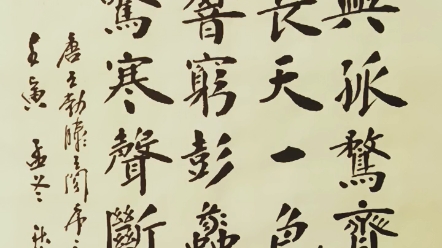 與孤鶩齊
長天一色
響窮彭蠡
驚寒聲斷
唐王勃滕王閣序
壬寅孟冬